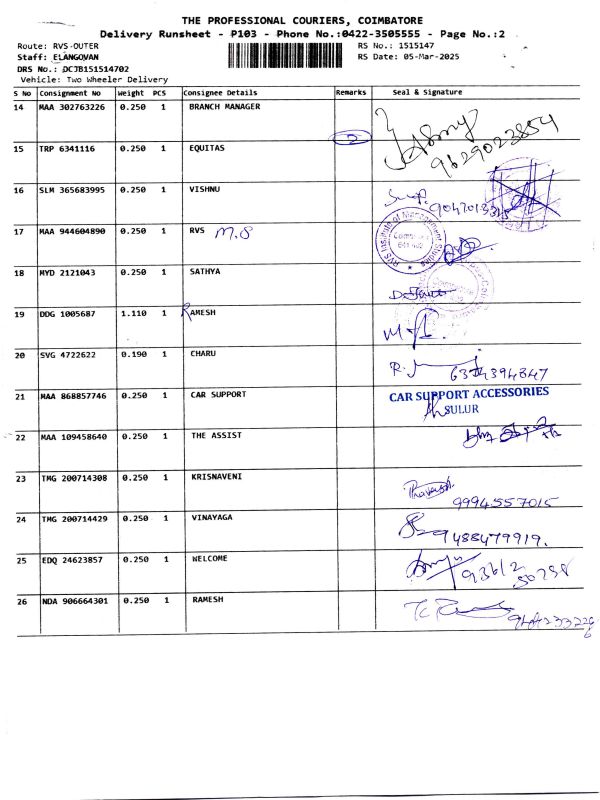 THE PROFESSIONAL COURIERS, COIMBATORE
Delivery Runsheet - P103 - Phone No.:0422-3505555 - Page No.:2
Route: RVS OUTER
RS No.: 1515147
Staff: ELANGOVAN
RS Date: 05-Mar-2025
DRS No.: DCJB151514702
Vehicle: Two Wheeler Delivery
S No Consignment No Weight PCS Consignee Details Remarks Seal & Signature
14 MAA 302763226 0.250 1 BRANCH MANAGER
9629023854
15 TRP 6341116 0.250 1 EQUITAS 2
16 SLM 365683995 0.250 1 VISHNU
17 MAA 944604890 0.250 1 RVS M.S
RVS Institute of Management Studies
18 MYD 2121043 0.250 1 SATHYA
19 DDG 1005687 1.110 1 RAMESH
20 SVG 4722622 0.190 1 CHARU
21 MAA 868857746 0.250 1 CAR SUPPORT CAR SUPPORT ACCESSORIES
SULUR
22 MAA 109458640 0.250 1 THE ASSIST
23 TMG 200714308 0.250 1 KRISNAVENI
9994557015
24 TMG 200714429 0.250 1 VINAYAGA
9488479919.
25 EDQ 24623857 0.250 1 WELCOME
93612
50758
26 NDA 906664301 0.250 1 RAMESH